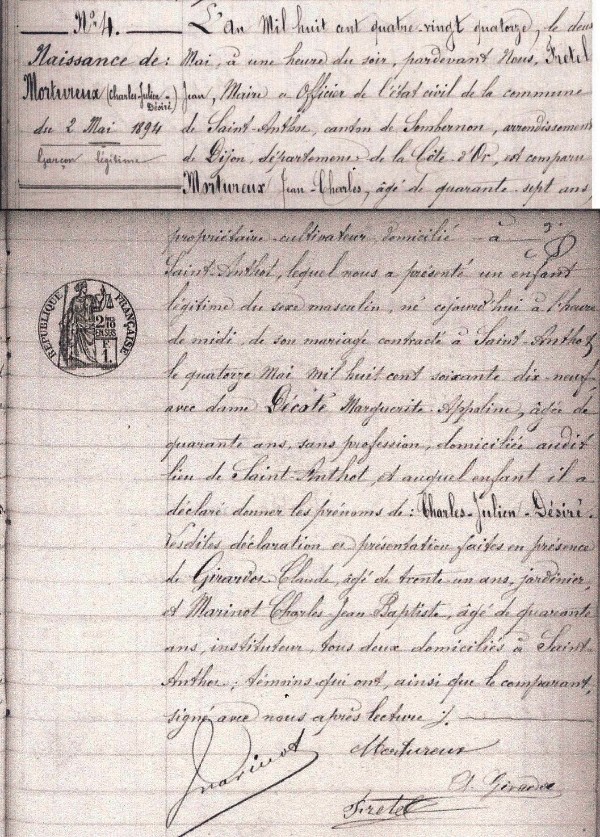 N° 4.
Naissance de:
Mortureux (Charles-Julien-
Désiré)
du 2 Mai 1894
Garçon légitime
L'An Mil huit cent quatre-vingt quatorze, le deux
Mai, à une heure du soir, pardevant Nous, Fretel
Jean, Maire et Officier de l'état civil de la commune
de Saint-Anthot, canton de Sombernon, arrondissement
de Dijon, département de la Côte-d'Or, est comparu
Mortureux Jean-Charles, âgé de quarante-sept ans,
propriétaire-cultivateur, domicilié à
Saint-Anthot, lequel nous a présenté un enfant
légitime du sexe masculin, né cejourd'hui à l'heure
de midi, de son mariage contracté à Saint-Anthot
le quatorze Mai mil huit cent soixante dix-neuf
avec dame Décate Marguerite-Appoline, âgée de
quarante ans, sans profession, domiciliée audit
lieu de Saint-Anthot, et auquel enfant il a
déclaré donner les prénoms de: Charles-Julien-Désiré.
Lesdites déclaration et présentation faites en présence
de Girardot Claude, âgé de trente-un ans, jardinier,
et Marinot Charles-Jean-Baptiste, âgé de quarante
ans, instituteur, tous deux domiciliés à Saint-
Anthot; témoins qui ont, ainsi que le comparant,
signé avec nous après lecture
Marinot
Mortureux
Girardot
Fretel
RÉPUBLIQUE FRANÇAISE